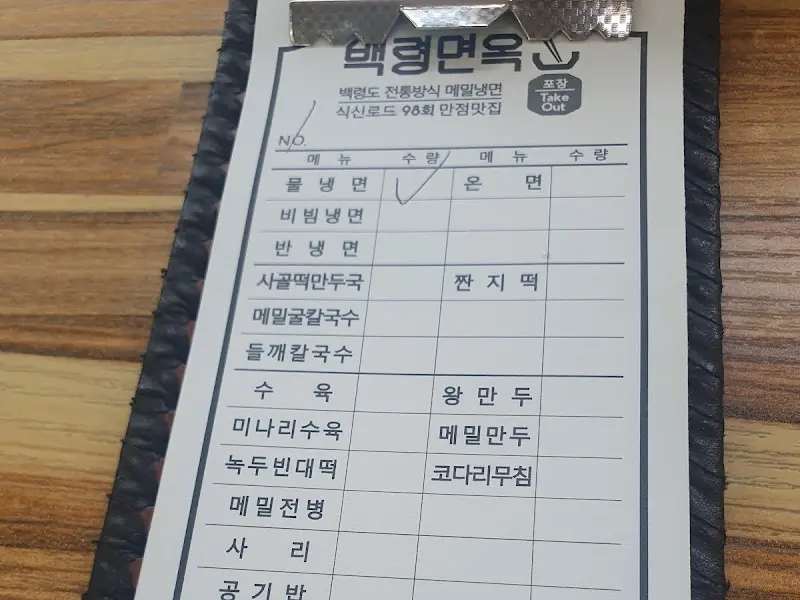 백령면옥
백령도 전통방식 메밀냉면
식신로드 98회 만점맛집
포장
Take
Out
NO.
메 뉴 수 량 메 뉴 수 량
물 냉 면 온 면
비빔냉면
반 냉 면
사골떡만두국 짠 지 떡
메밀굴칼국수
들깨칼국수
수 육 왕 만 두
미나리수육 메밀만두
녹두빈대떡 코다리무침
메밀전병
사 리
공 기 밥